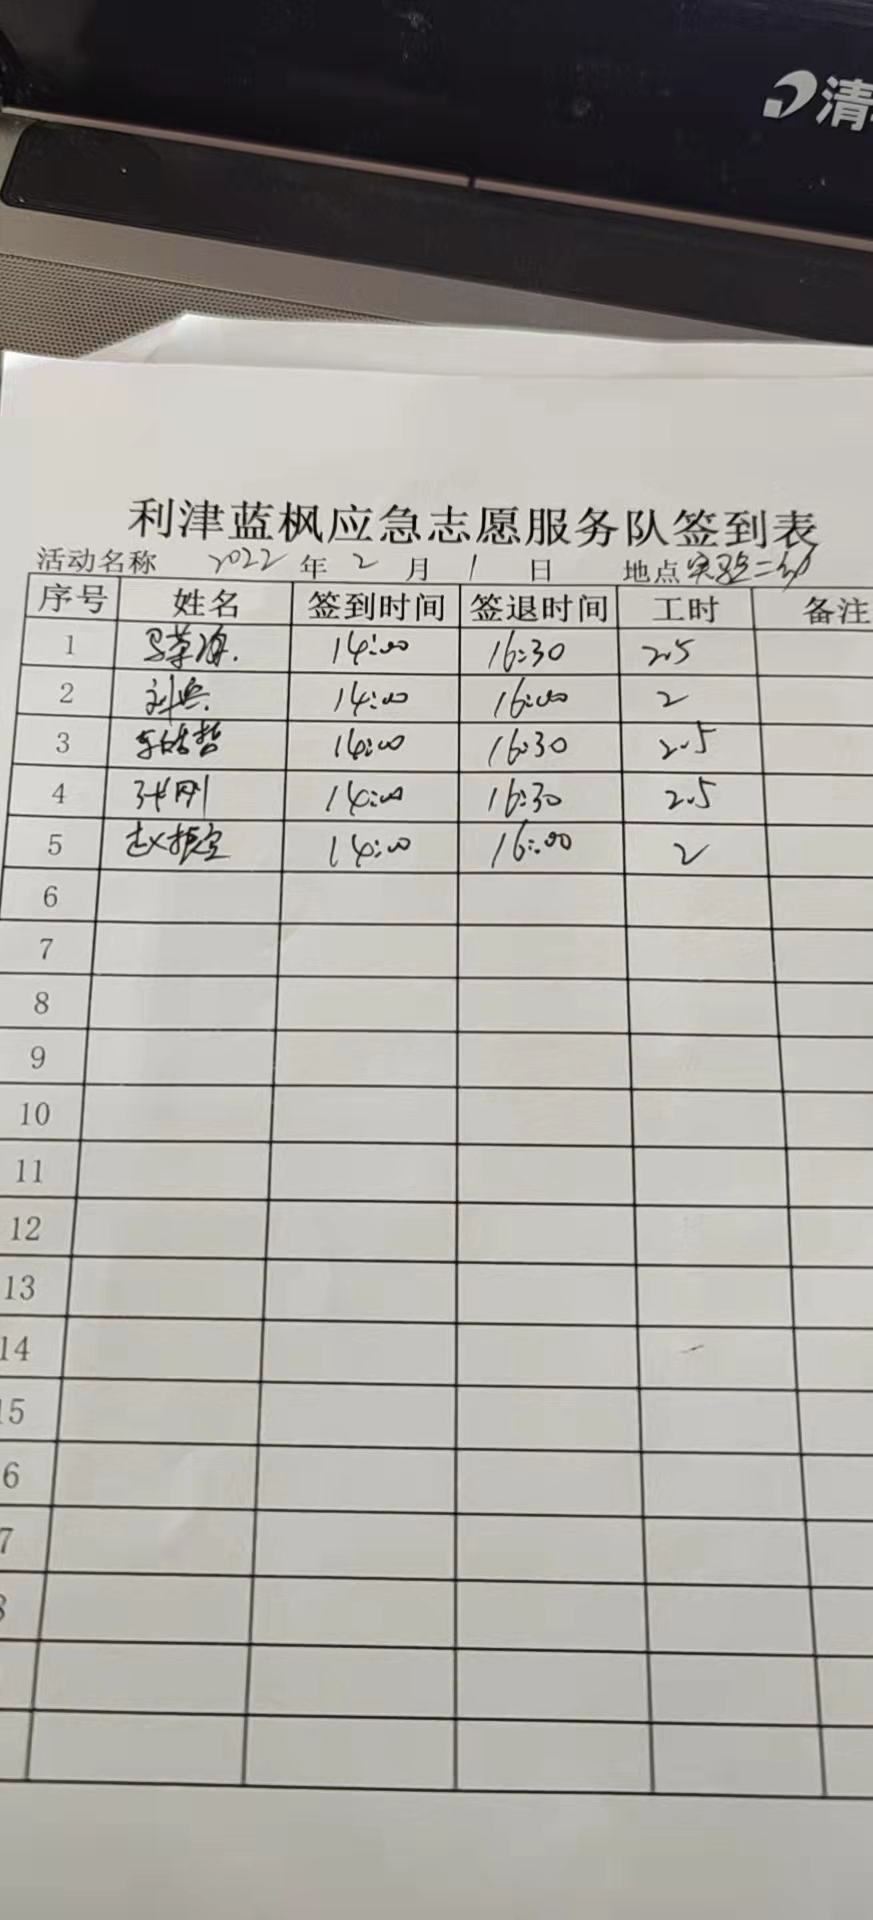 清
利津蓝枫应急志愿服务队签到表
活动名称 2022 年 2 月 1 日 地点 实验二幼
序号 姓名 签到时间 签退时间 工时 备注
1 14:00 16:30 2.5
2 14:00 16:00 2
3 14:00 16:30 2.5
4 张刚 14:00 16:30 2.5
5 14:00 16:00 2
6
7
8
9
10
11
12
13
14
15
6
7
8